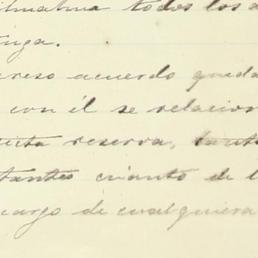 todos los
nga.
reso acuerdo queda
con él se relacion
uta reserva, tanto
tantes cuanto de l
cargo de cualquiera